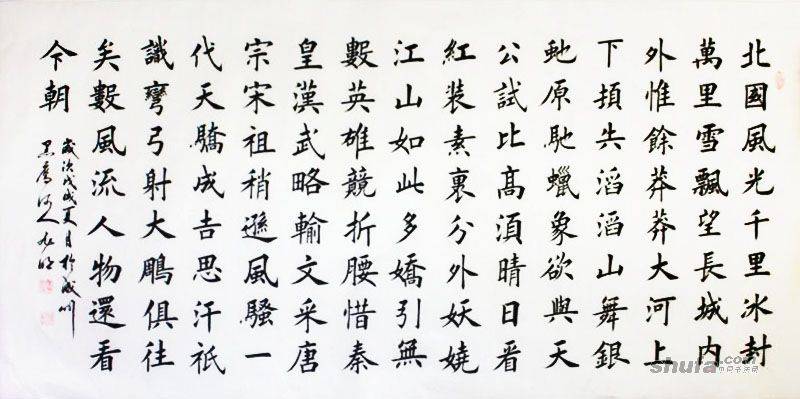 北國風光千里冰封
萬里雪飄望長城内
外惟餘莽莽大河上
下頓失滔滔山舞銀
虵原馳蠟象欲與天
公試比高須晴日看
紅裝素裹分外妖嬈
江山如此多嬌引無
數英雄競折腰惜秦
皇漢武略輸文采唐
宗宋祖稍遜風騷一
代天驕成吉思汗祇
識彎弓射大鵰俱往
矣數風流人物還看
今朝
歲次戊戌夏月於
shufa.com
中国书法网